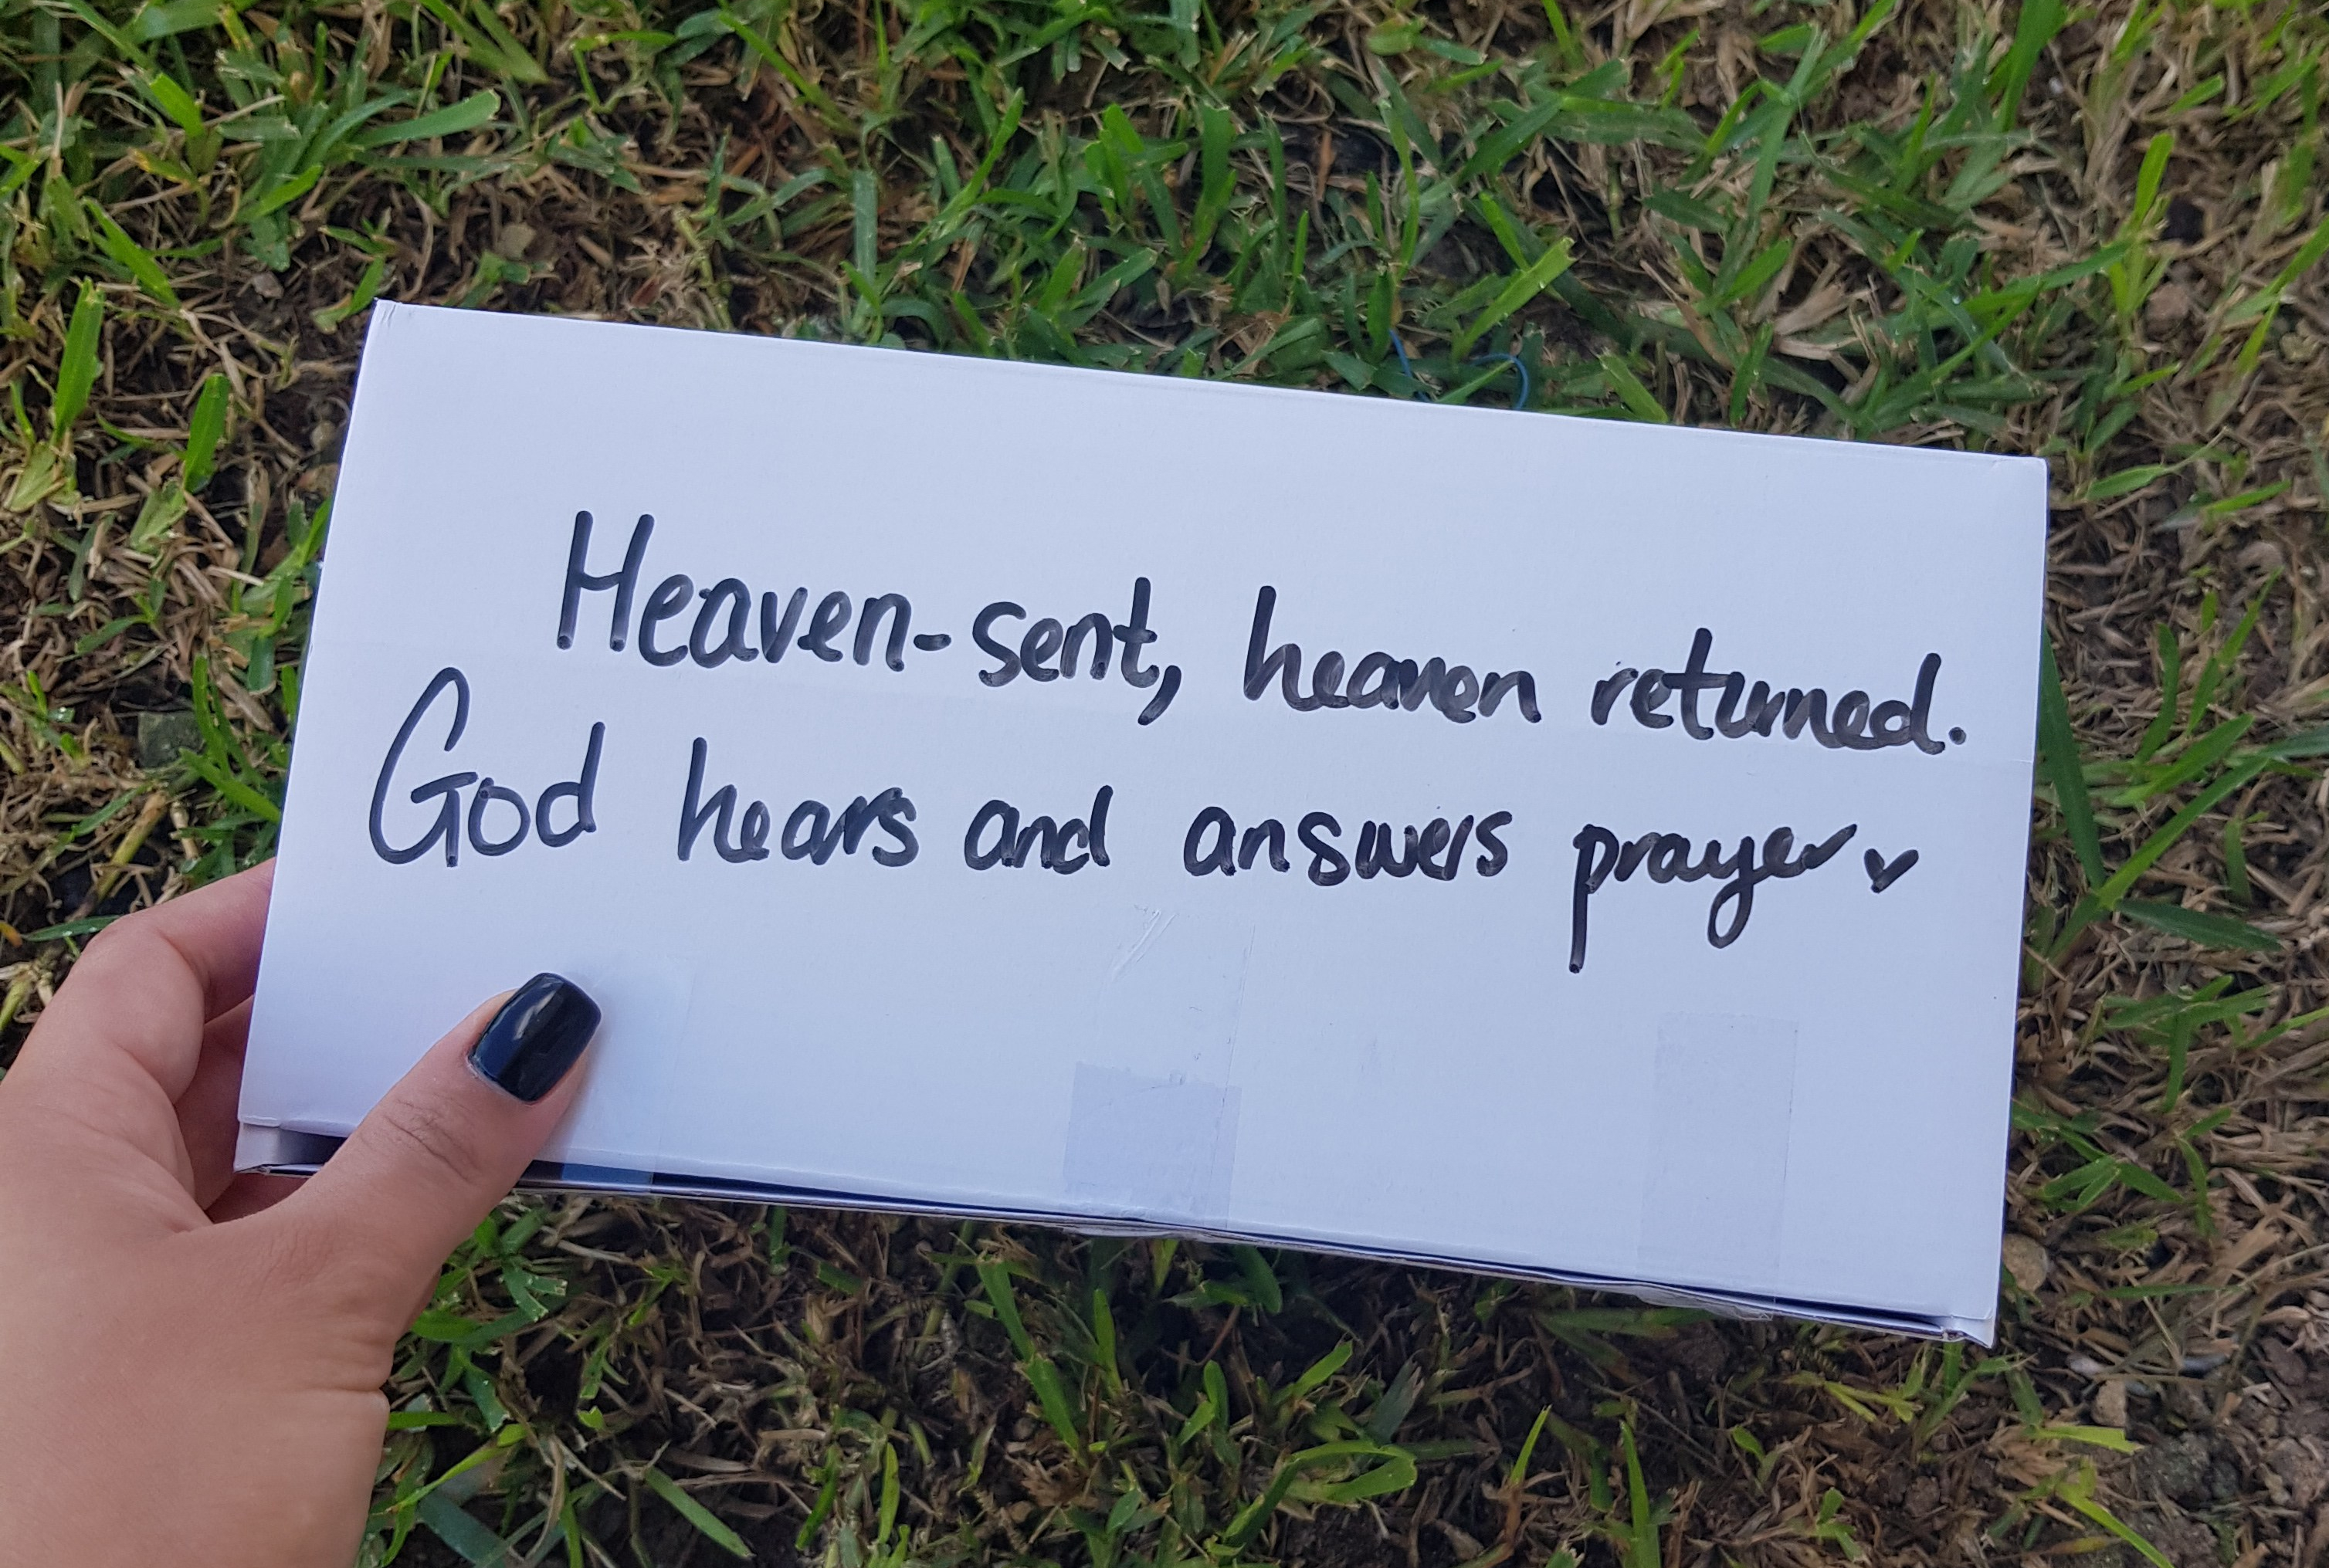 Heaven-sent, heaven returned.
God hears and answers prayer